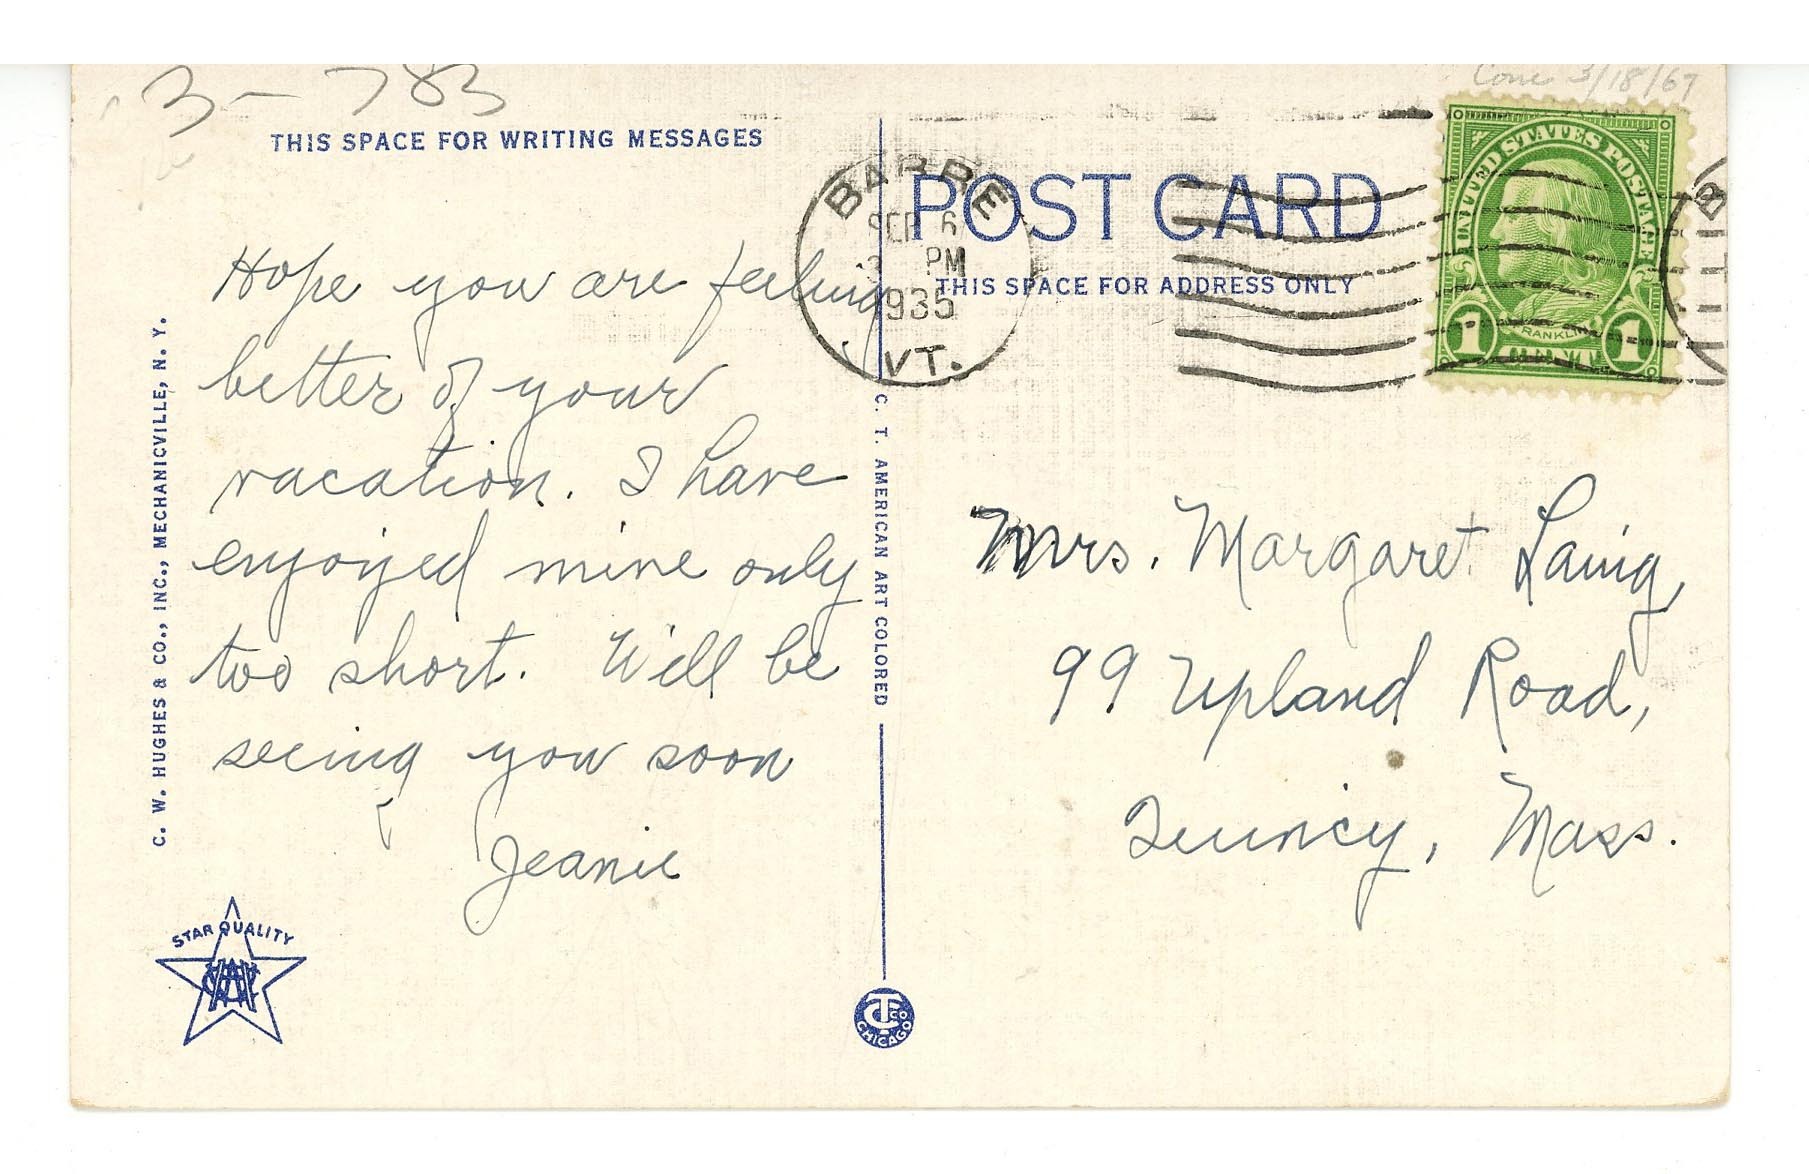 3 - 783
Conc 3/18/67
THIS SPACE FOR WRITING MESSAGES
Hope you are feeling
better of your
vacation. I have
enjoyed mine only
too short. Will be
seeing you soon
Jeanie
C. W. HUGHES & CO., INC., MECHANICVILLE, N. Y.
STAR QUALITY
C. T. AMERICAN ART COLORED
CHICAGO
BARRE
SEP 6
PM
1935
VT.
POST CARD
THIS SPACE FOR ADDRESS ONLY
UNITED STATES POSTAGE
FRANKLIN
1 1
Mrs. Margaret Laing,
99 Upland Road,
Quincy, Mass.